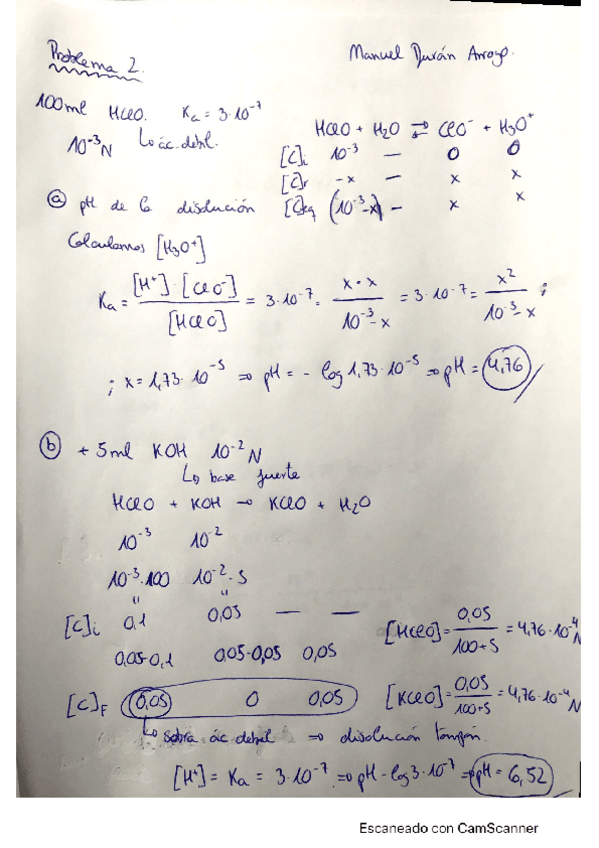 Problema 2.
Manuel Durán Arroyo.
100ml HClO. Ka = 3·10⁻⁷
10⁻³N ↳ ác. debil.
HClO + H₂O ⇌ ClO⁻ + H₃O⁺
[C]i 10⁻³ — 0 0
[C]r -x — x x
[C]eq (10⁻³-x) — x x
a) pH de la disolución
Calculamos [H₃O⁺]
Ka = [H⁺]·[ClO⁻] / [HClO] = 3·10⁻⁷ = x·x / 10⁻³-x = 3·10⁻⁷ = x² / 10⁻³-x ;
; x = 1,73·10⁻⁵ ⇒ pH = - log 1,73·10⁻⁵ ⇒ pH = 4,76
b) + 5ml KOH 10⁻²N
↳ base fuerte
HClO + KOH → KClO + H₂O
10⁻³ 10⁻²
10⁻³·100 10⁻²·5
[C]i 0,1 0,05 — —
[HClO] = 0,05 / 100+5 = 4,76·10⁻⁴ N
0,05-0,1 0,05-0,05 0,05
[C]F 0,05 0 0,05
[KClO] = 0,05 / 100+5 = 4,76·10⁻⁴ N
↳ sobra ác debil ⇒ disolución tampón.
[H⁺] = Ka = 3·10⁻⁷ ⇒ pH - log 3·10⁻⁷ ⇒ pH = 6,52
Escaneado con CamScanner